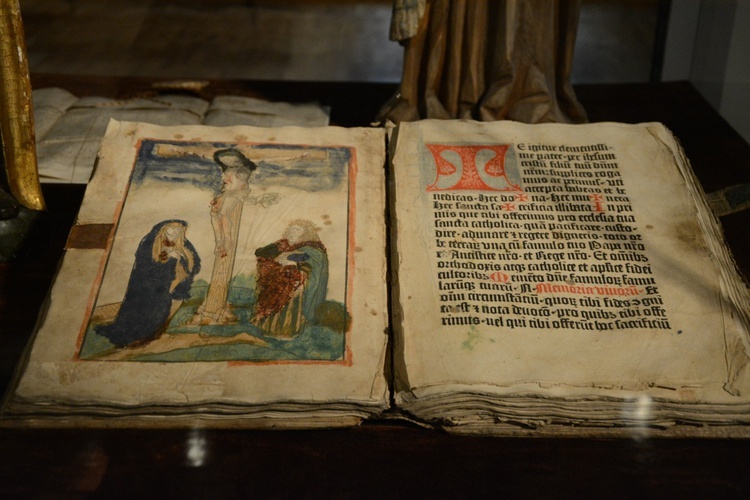 TE igitur clementissi-
me pater· per ihesum
cristū filiū tuū dn̄m
nr̄m: supplices roga
mus ac petimus· vti
accepta habeas et be
nedicas· Hec do✠na· hec mu✠nera
hec sancta sa✠crificia illibata In pri
mis que tibi offerimus pro ecclesia tua
sancta catholica· quā pacificare· custo-
dire· adunare et regere digneris· toto or
be terraꝝ vna cū famulo tuo Papa nr̄o
et Antistite nr̄o· et Rege nr̄o· Et oībus
orthodoxis atqꝫ catholice et apl̄ice fidei
cultoribꝰ Memēto dn̄e famuloꝝ famu
larūqꝫ tuarū· N· Memoria viuorū· Et
oīm circumstātiū· quoꝝ tibi fides ↄgni
ta est et nota deuocō· pro quibꝰ tibi offe
rimus· vel qui tibi offerūt hoc sacrificiū